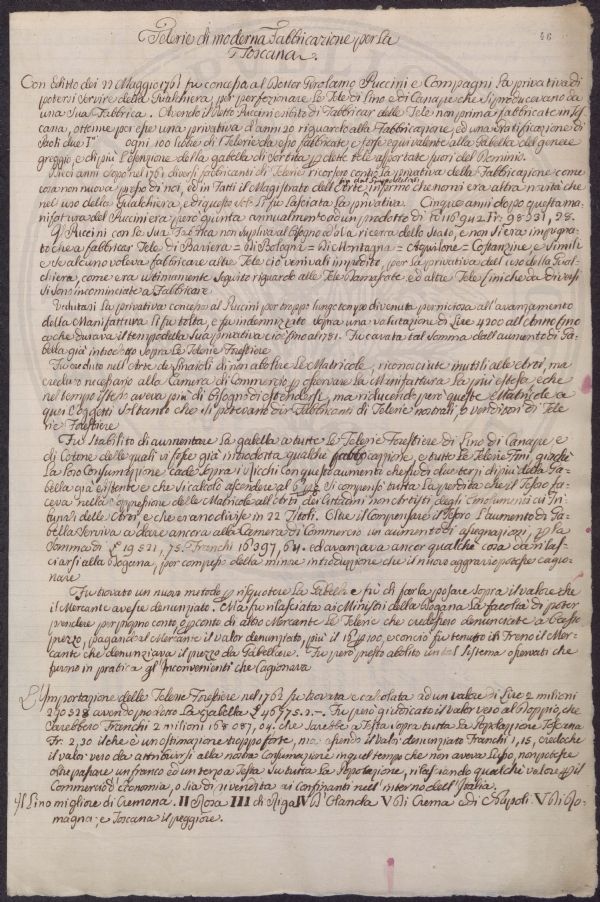 46
Telerie di moderna Fabbricazione per la
Toscana.
Con Editto dei 22 Maggio 1761 fu concessa al Dottor Girolamo Puccini e Compagni la privativa di
potersi servire della Gualchiera, per perfezionare le Tele di Lino e di Canape che si producevano da
una sua Fabbrica. Avendo il detto Puccini esibito di Fabbricar delle Tele non prima fabbricate in Tos
cana, ottenne per esse una privativa d'anni 20 riguardo alla Fabbricazione ed una gratificazione di
Paoli due ogni 100 libbre di Telerie da esso fabbricate, e forse equivalente alla Gabella del genere
greggio, e di più l'esenzione della gabella di sortita p dette tele asportate fuori del Dominio.
Pochi anni dopo nel 1761 diversi fabbricanti di Telerie ricorsero contro la privativa della Fabbricazione come
cosa non nuova presso di noi, ed in fatti il Magistrato dell'Arte informò che non vi era altra novità che
nel uso della Gualchiera, ed a questo solo si fu lasciata la privativa. Cinque anni dopo questa ma
nifattura del Puccini era però giunta annualmente ad un prodotto di 98531, 28.
Il Puccini con la sua Fabbrica non suppliva al bisogno ed alla ricerca dello Stato, e non si era impegna
to che a fabbricar Tele di Baviera = di Bologna = di Montagna = Aquilone = Costanzine, e Simili
e se alcuno voleva fabbricare altre Tele ciò veniva impedito, per la privativa dell'uso della Gual
chiera, come era ultimamente seguito riguardo alle Tele Damascate, ed altre Tele fini che da diversi
si sono incominciate a Fabbricare.
Vedutasi la privativa concessa al Puccini per troppo lungo tempo divenuta perniciosa all'avanzamento
della Manifattura li fu tolta, e fu indennizzato sopra una valutazione di Lire 4200 all'Anno fino
a che durava il tempo della sua privativa cioè fino al 1781. Fu cavata tal somma dall'aumento di Ga
bella già introdotto sopra le Telerie Forestiere
Fu creduto nell'Arte de Linaioli di non abolire le Matricole, riconosciute inutili alle Arti, ma
credute necessario alla Camera di Commercio p osservare la Manifattura la più estesa, e che
nel tempo stesso aveva più di bisogno di estendersi, ma riducendo però queste Matricole a
quei soggetti soltanto che si potevano dir Fabbricanti di Telerie nostrali, o venditori di Tele
rie Forestiere
Fu stabilito di aumentare la gabella a tutte le Telerie Forestiere di Lino di Canape e
di Cotone delle quali vi fosse già introdotta qualche fabbricazione, e tutte le Telerie Fini, giacchè
la loro Consumazione cade sopra i ricchi Con questo aumento che fu di due terzi di più della Ga
bella già esistente e che si calcolò ascendere al 6 p % si compensò tutta la perdita che il Tesoro fa
ceva nella soppressione delle Matricole all'Arti dei Cittadini non Artisti degli Emolumenti ai Tri
bunali delle Arti, e che erano divise in 22 Titoli. Oltre il compensare il Tesoro l'aumento di Ga
bella serviva a dare ancora alla Camera di Commercio un aumento di assegnazioni, p la
Somma di £ 19521, 75. Franchi 16397, 64. ed avanzava ancor qualche cosa da rilas
ciarsi alla Dogana, per compenso della minore introduzione che il nuovo aggravio potesse cagio
nare
Fu trovato un nuovo metodo p riscuotere la Gabella e fu di farla posare sopra il valore che
il Mercante avesse denunziato. Ma fu rilasciata ai Ministri della Dogana la facoltà di poter
prendere per proprio conto, o p conto di altro Mercante le Telerie che credessero denunciate a basso
prezzo, pagando al Mercante il valor denunziato, più il 12 p 100, e con ciò fu tenuto in Freno il Mer
cante che denunziava il prezzo da Gabellare. Fu però presto abolito un tal sistema osservati che
furono in pratica gl'Inconvenienti che Cagionava
L'Importazione delle Telerie Forestiere nel 1762 fu trovata e calcolata ad un valore di Lire 2 milioni
avendo prodotto la Gabella Fu però giudicato il valor vero al Doppio, che
sarebbero Franchi 2 milioni 168087, 04. che sarebbe a Testa sopra tutta la Popolazione Toscana
Fr. 2,30 il che è un'estimazione troppo forte, ma essendo il valor denunziato Franchi 1,15, credo che
il valor vero da attribuirsi alla nostra Consumazione in quel tempo che non aveva Lusso, non potesse
oltrepassare un franco ed un terzo a Testa su tutta la Popolazione, rilasciando qualche valore p il
Commercio d'Economia, o sia di rivendita ai Confinanti nell'Interno dell'Italia.
Il Lino migliore di Cremona. II Rosa III di Riga IV d'Olanda V di Crema e di Napoli. V di Ro-
magna; e Toscana il peggiore.